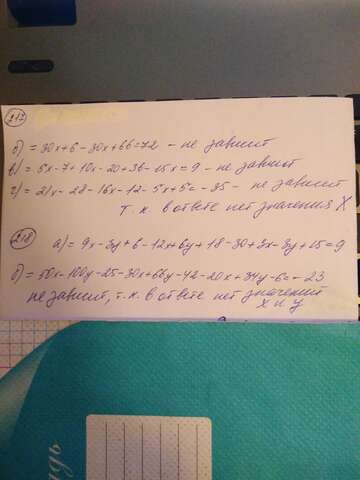 217
б) = 30x+6-30x+66=72 - не зависит
в) = 5x-7+10x-20+36-15x=9 - не зависит
г) = 21x-28-16x-12-5x+5= -35 - не зависит
т.к в ответе нет значения X
218
а) = 9x-3y+6-12x+6y+18-30+3x-3y+15=9
б) = 50x-100y-25-30x+66y-42-20x+34y-6= -23
не зависит, т.к. в ответе нет значений
x и y